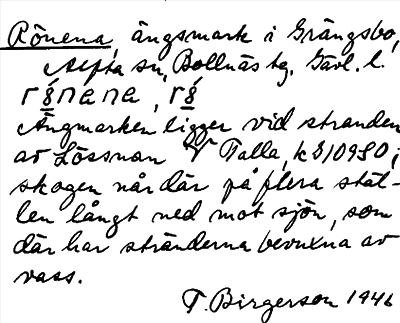 Rönena, ängsmark i Grängsbo,
Alfta sn, Bollnäs tg. Gävl. l.
Ängmarken ligger vid stranden
av Lössnan V Talla, k 8/10980;
skogen når där på flera stäl-
len långt ned mot sjön, som
där har stränderna bevuxna av
vass.
T. Birgerson 1946